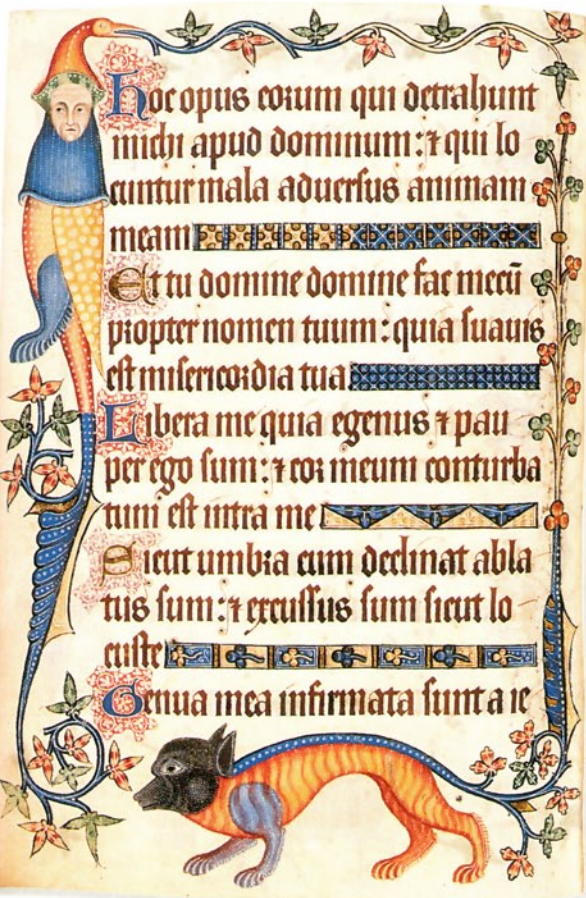 Hoc opus eorum qui detrahunt
michi apud dominum: ⁊ qui lo
cuntur mala adversus animam
meam
Et tu domine domine fac mecū
propter nomen tuum: quia suavis
est misericordia tua.
Libera me quia egenus ⁊ pau
per ego sum: ⁊ cor meum conturba
tum est intra me
Sicut umbra cum declinat abla
tus sum: ⁊ excussus sum sicut lo
custe
Genua mea infirmata sunt a ie